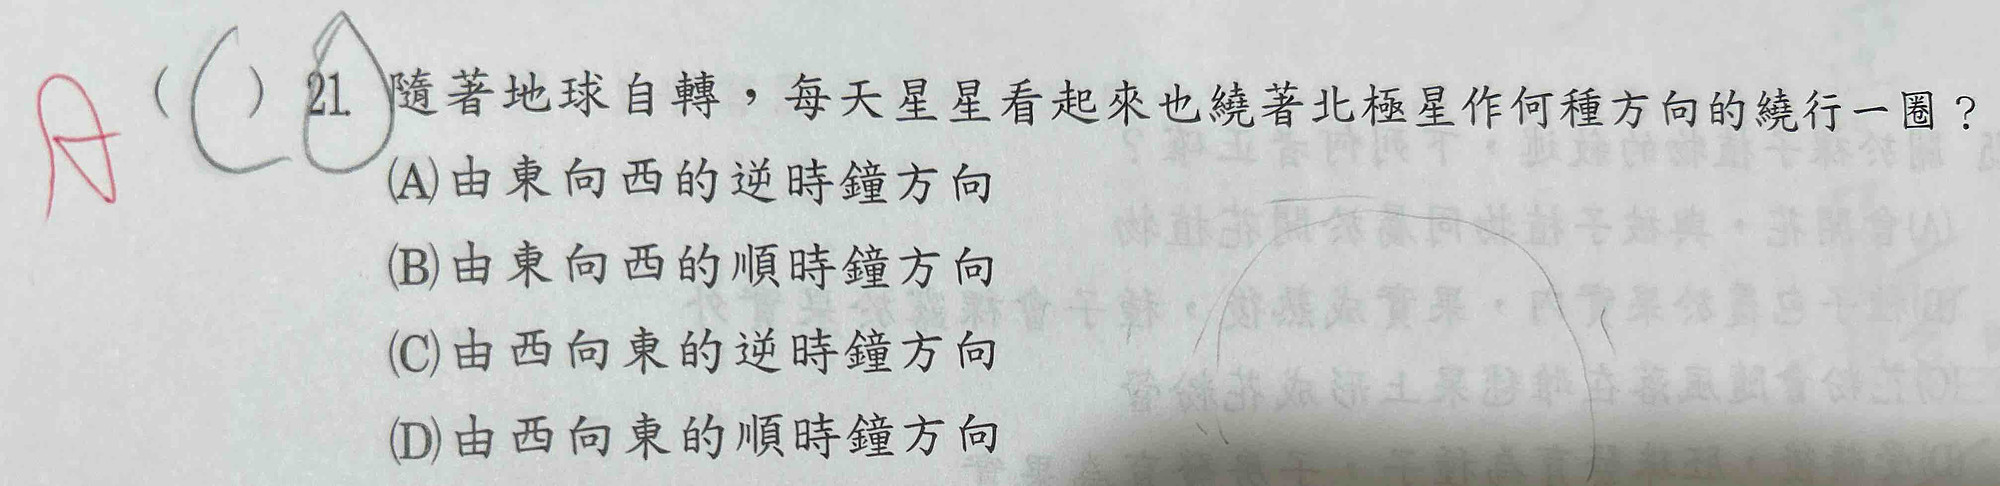 A ( C ) 21 隨著地球自轉，每天星星看起來也繞著北極星作何種方向的繞行一圈？
(A)由東向西的逆時鐘方向
(B)由東向西的順時鐘方向
(C)由西向東的逆時鐘方向
(D)由西向東的順時鐘方向